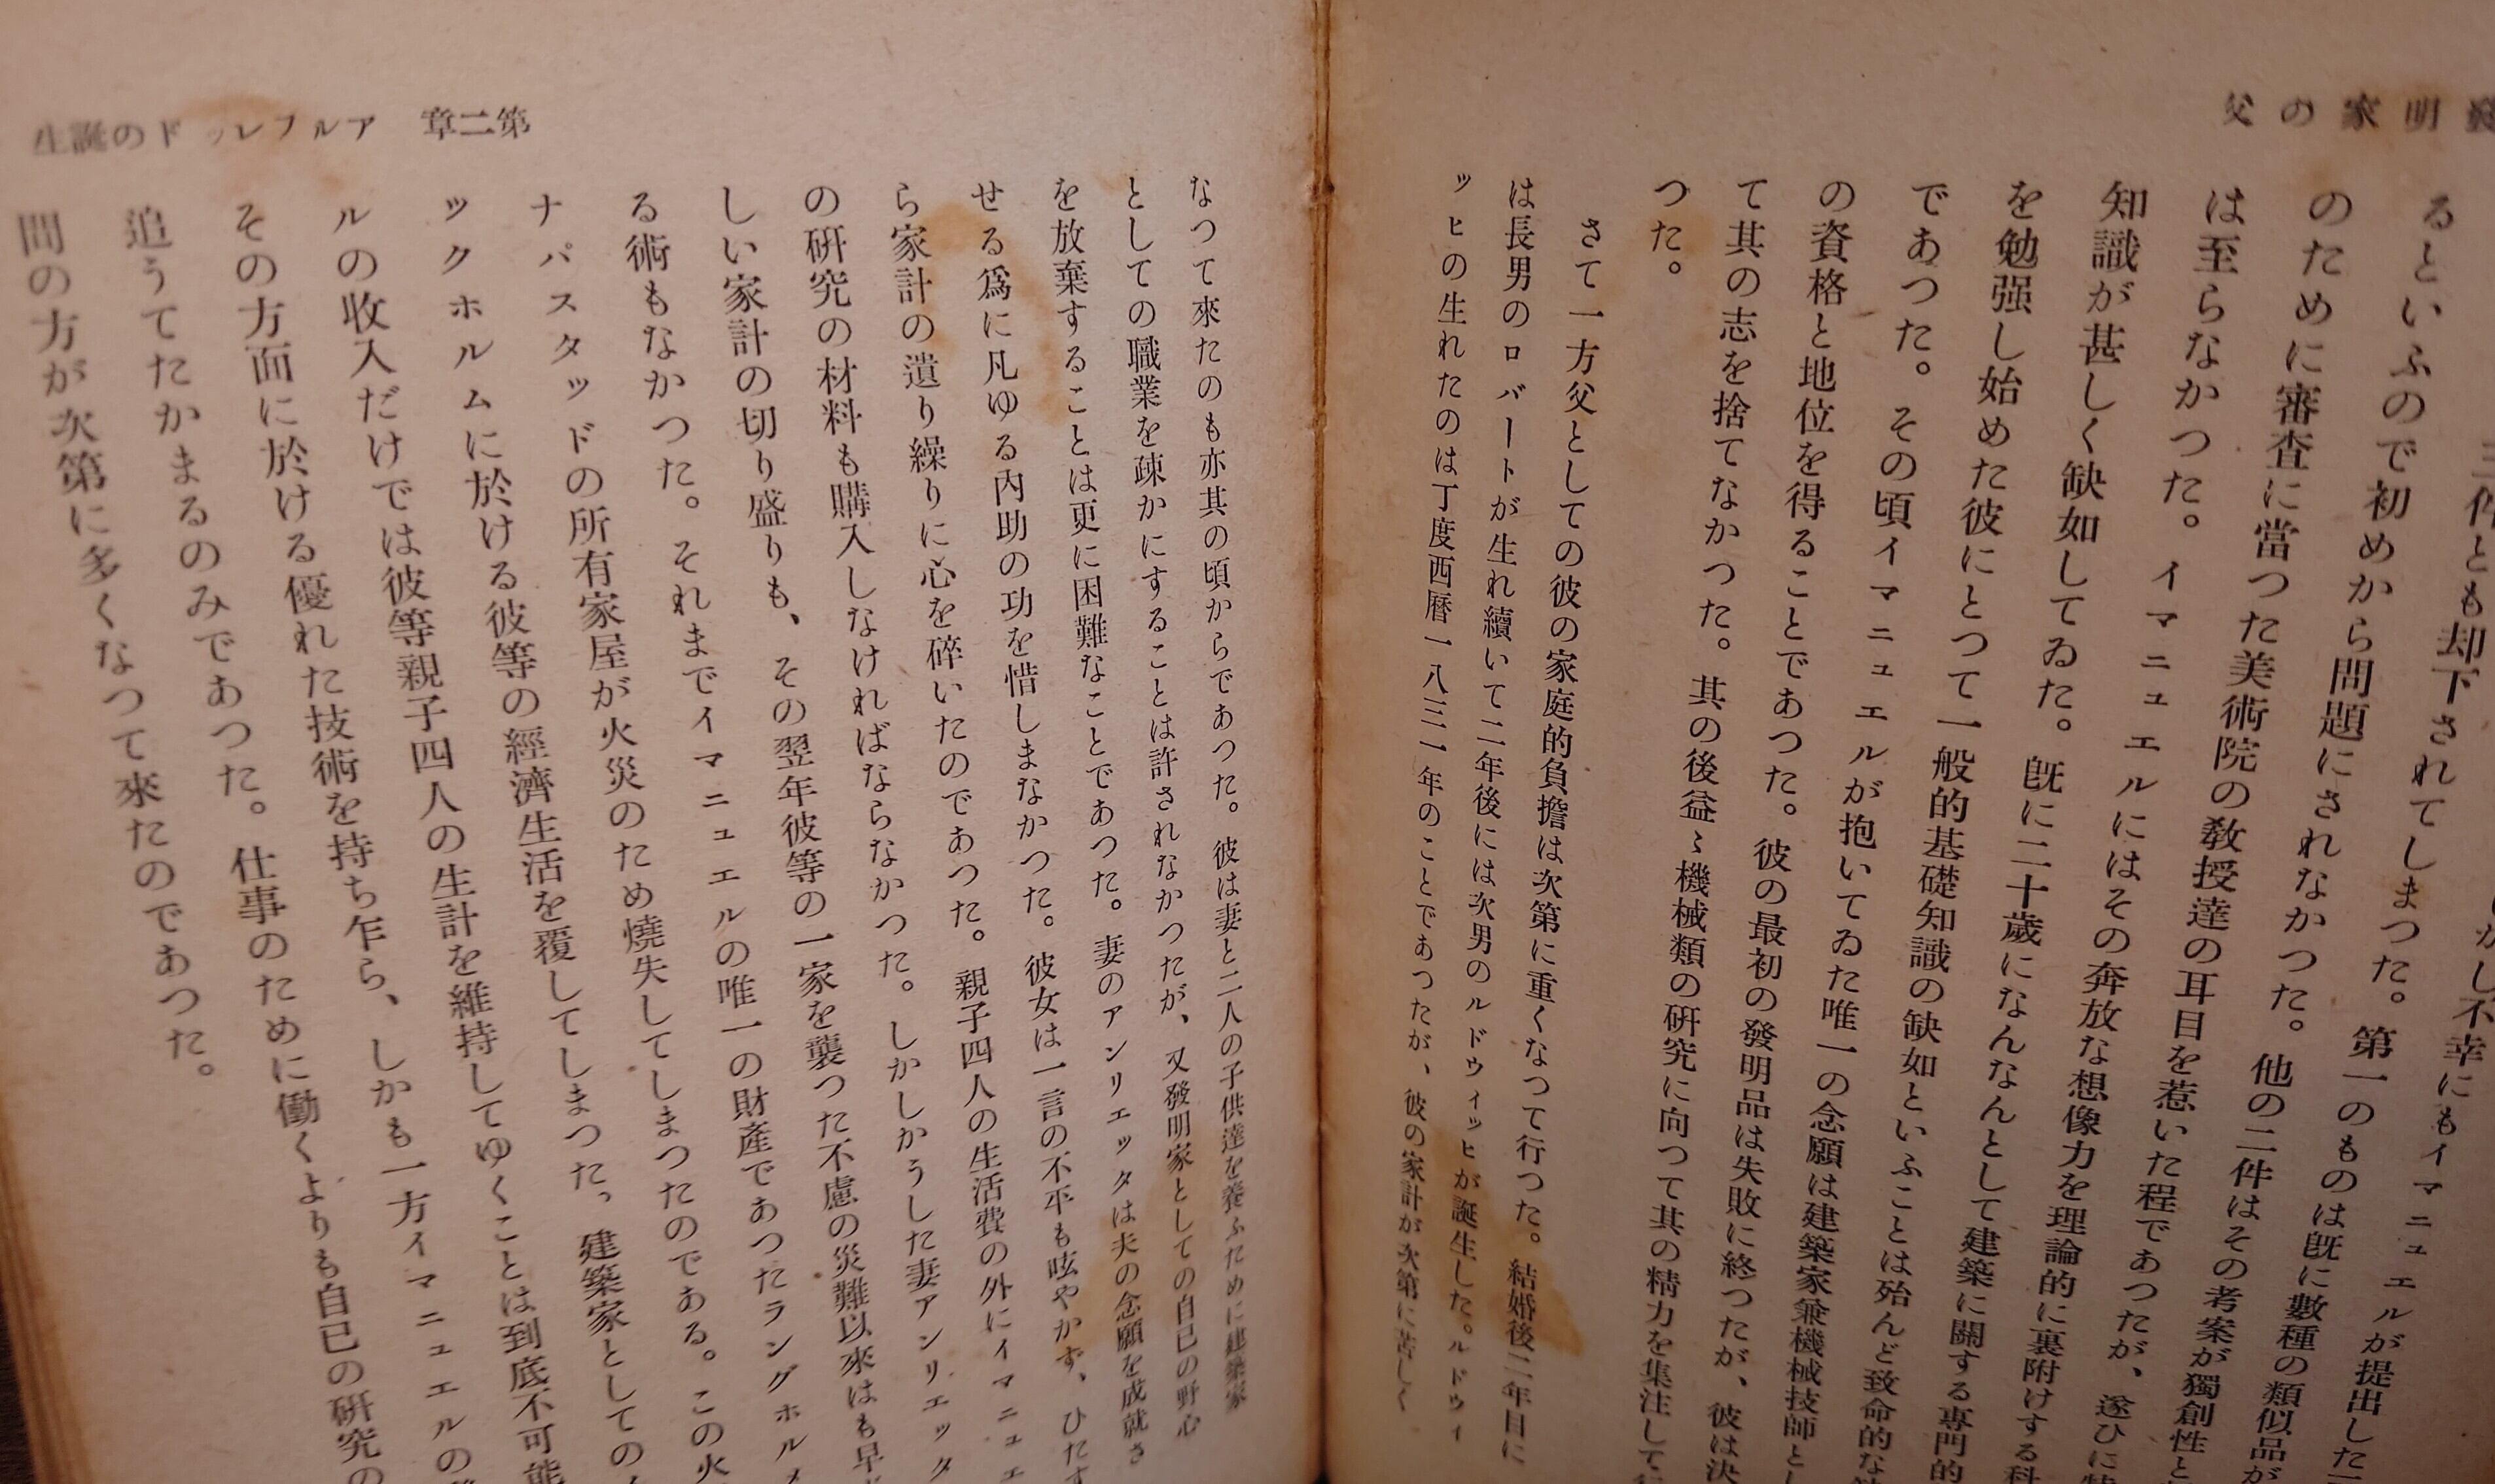 發明家の父
三件とも却下されてしまつた。
かし不幸にもイマニュエルが提出した
るといふので初めから問題にされなかつた。第一のものは既に數種の類似品が
のために審査に當つた美術院の教授達の耳目を惹いた程であつたが、
他の二件はその考案が獨創性と
は至らなかつた。イマニュエルにはその奔放な想像力を理論的に裏附けする科
知識が甚しく缺如してゐた。既に二十歲になんなんとして建築に關する專門的
を勉强し始めた彼にとつて一般的基礎知識の缺如といふことは殆んど致命的な
であつた。その頃イマニュエルが抱いてゐた唯一の念願は建築家兼機械技師とし
の資格と地位を得ることであつた。彼の最初の發明品は失敗に終つたが、彼は決
て其の志を捨てなかつた。其の後益〻機械類の硏究に向つて其の精力を集注して行
つた。
さて一方父としての彼の家庭的負擔は次第に重くなつて行つた。結婚後二年目に
は長男のロバートが生れ續いて二年後には次男のルドウィッヒが誕生した。ルドウィ
ッヒの生れたのは丁度西曆一八三一年のことであつたが、彼の家計が次第に苦しく
第二章 アルフレッドの誕生
なつて來たのも亦其の頃からであつた。彼は妻と二人の子供達を養ふために建築家
としての職業を疎かにすることは許されなかつたが、又發明家としての自己の野心
を放棄することは更に困難なことであつた。妻のアンリエッタは夫の念願を成就さ
せる爲に凡ゆる內助の功を惜しまなかつた。彼女は一言の不平も呟やかず、ひたす
ら家計の遣り繰りに心を碎いたのであつた。親子四人の生活費の外にイマニュエ
の硏究の材料も購入しなければならなかつた。しかしかうした妻アンリエッタ
しい家計の切り盛りも、その翌年彼等の一家を襲つた不慮の災難以來はも早
る術もなかつた。それまでイマニュエルの唯一の財產であつたラングホルメ
ナパスタッドの所有家屋が火災のため燒失してしまつたのである。この火
ックホルムに於ける彼等の經濟生活を覆してしまつた。建築家としての
ルの收入だけでは彼等親子四人の生計を維持してゆくことは到底不可能
その方面に於ける優れた技術を持ち乍ら、しかも一方イマニュエルの
追うてたかまるのみであつた。仕事のために働くよりも自己の硏究の
間の方が次第に多くなつて來たのであつた。